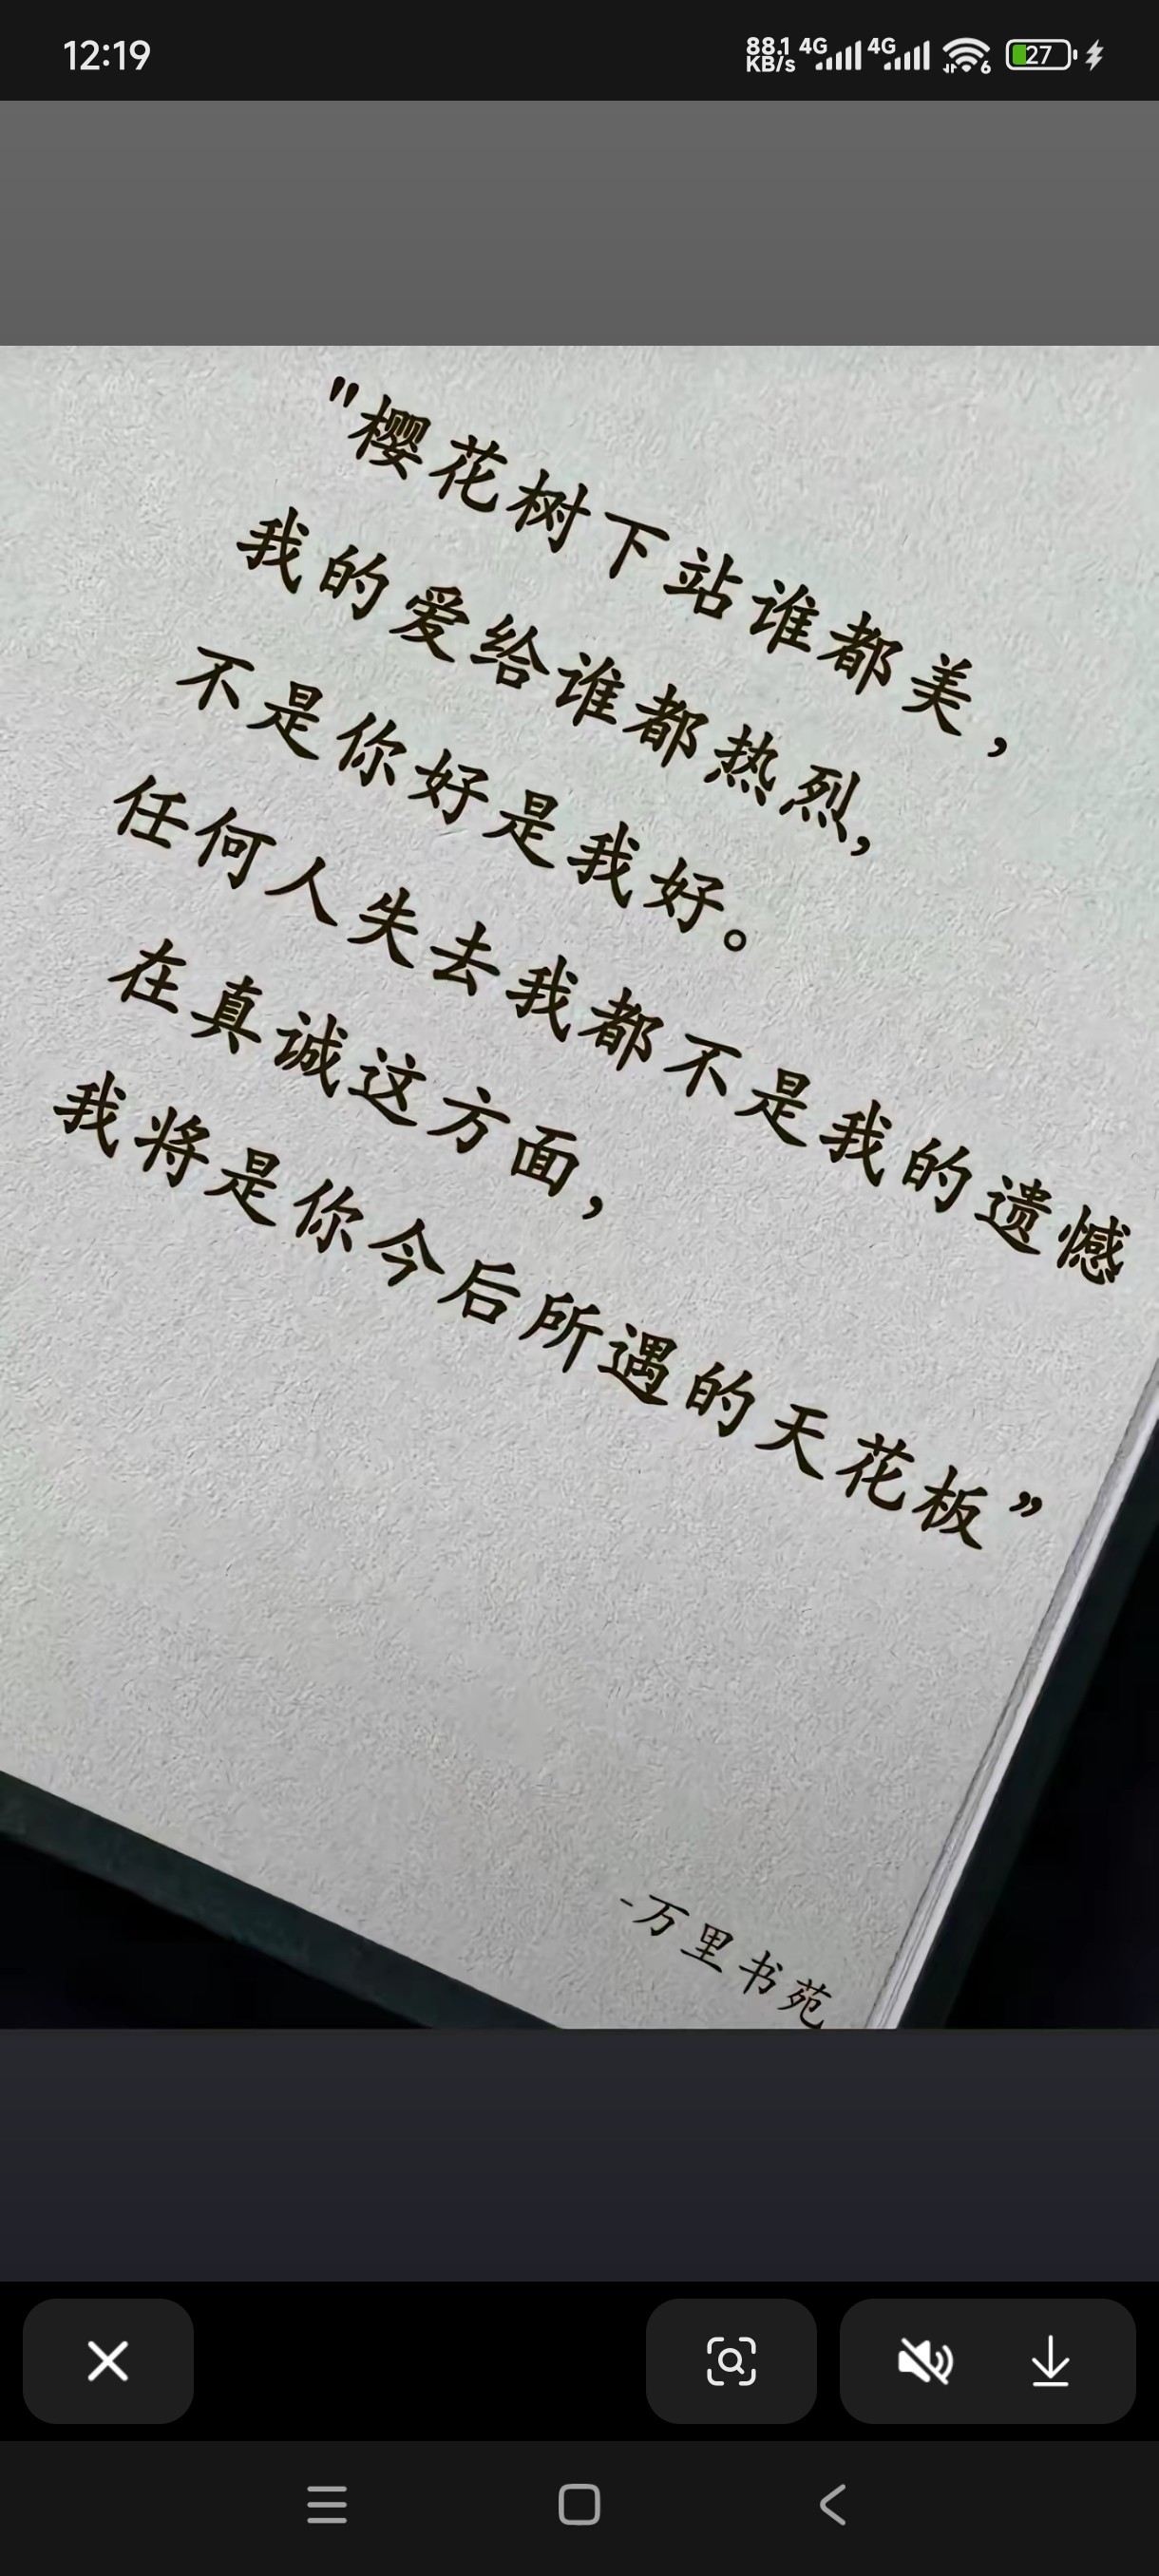 12:19
88.1 KB/s 4G 4G 6 27
"樱花树下站谁都美，
我的爱给谁都热烈，
不是你好是我好。
任何人失去我都不是我的遗憾
在真诚这方面，
我将是你今后所遇的天花板”
-万里书苑